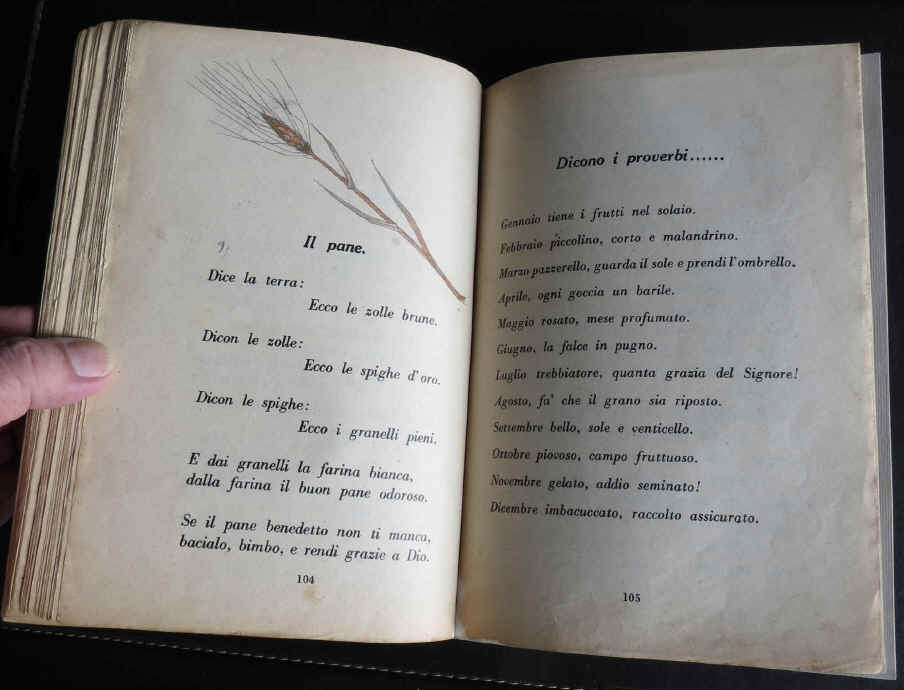 Il pane.
Dice la terra:
Ecco le zolle brune.
Dicon le zolle:
Ecco le spighe d'oro.
Dicon le spighe:
Ecco i granelli pieni.
E dai granelli la farina bianca,
dalla farina il buon pane odoroso.
Se il pane benedetto non ti manca,
bacialo, bimbo, e rendi grazie a Dio.
104
Dicono i proverbi......
Gennaio tiene i frutti nel solaio.
Febbraio piccolino, corto e malandrino.
Marzo pazzerello, guarda il sole e prendi l'ombrello.
Aprile, ogni goccia un barile.
Maggio rosato, mese profumato.
Giugno, la falce in pugno.
Luglio trebbiatore, quanta grazia del Signore!
Agosto, fa' che il grano sia riposto.
Settembre bello, sole e venticello.
Ottobre piovoso, campo fruttuoso.
Novembre gelato, addio seminato!
Dicembre imbacuccato, raccolto assicurato.
105